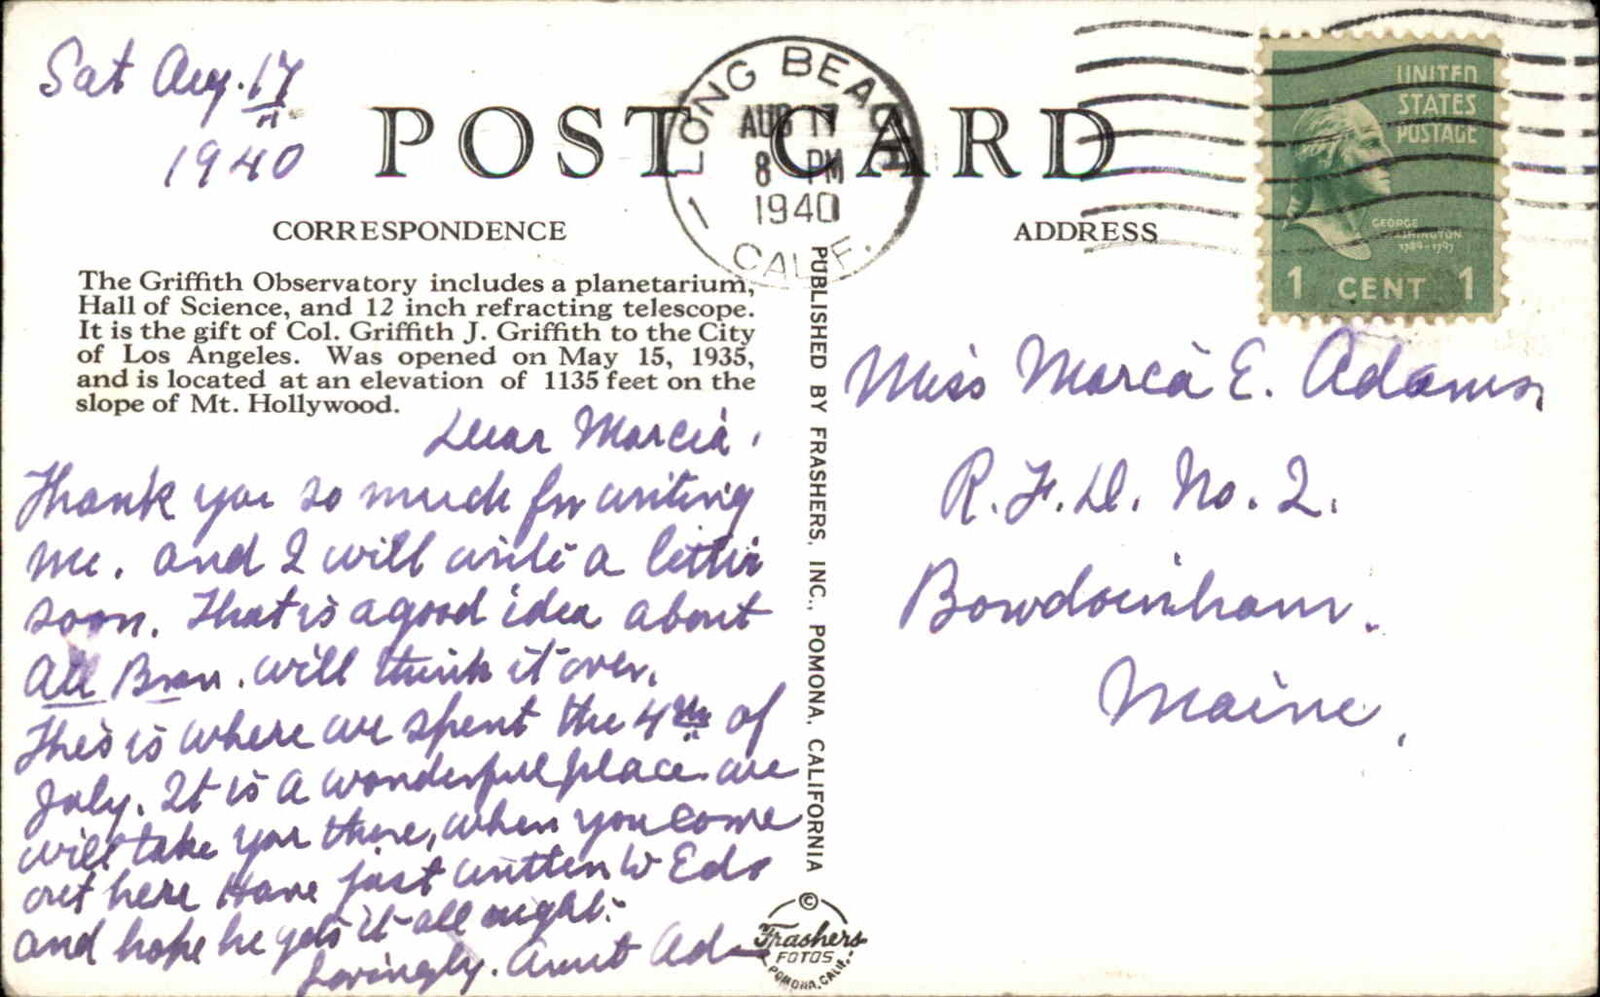 Sat Aug. 17th
1940
POST CARD
LONG BEACH
AUG 17
8 PM
1940
1 CALIF.
UNITED
STATES
POSTAGE
GEORGE
WASHINGTON
1789-1797
1 CENT 1
CORRESPONDENCE
ADDRESS
The Griffith Observatory includes a planetarium,
Hall of Science, and 12 inch refracting telescope.
It is the gift of Col. Griffith J. Griffith to the City
of Los Angeles. Was opened on May 15, 1935,
and is located at an elevation of 1135 feet on the
slope of Mt. Hollywood.
Dear Marcia,
Thank you so much for writing
me. and I will write a letter
soon. That is a good idea about
All Bran. will think it over.
This is where we spent the 4th of
July. It is a wonderful place. we
will take you there, when you come
out here Have just written
and hope he gets it all right.
Lovingly. Aunt
PUBLISHED BY FRASHERS, INC., POMONA, CALIFORNIA
©
Frashers
FOTOS
POMONA, CALIF.
Miss Marcia E. Adams,
R.F.D. No. 2.
Bowdoinham.
Maine,